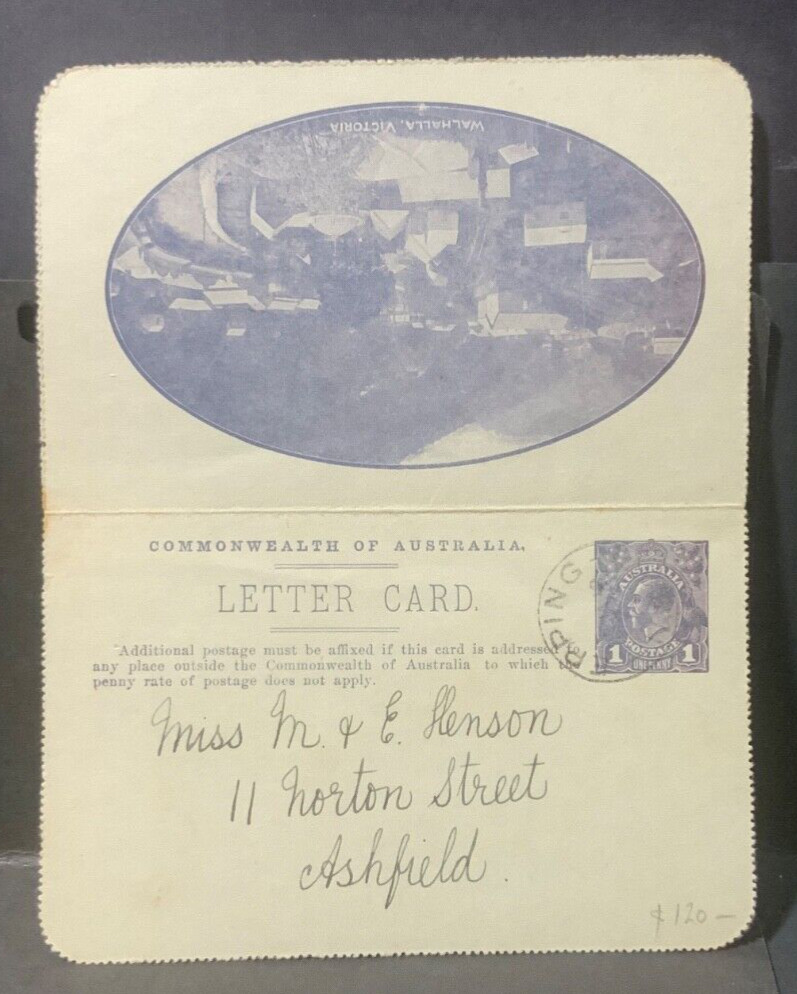 WALHALLA, VICTORIA
COMMONWEALTH OF AUSTRALIA.
LETTER CARD.
Additional postage must be affixed if this card is addressed to
any place outside the Commonwealth of Australia to which the
penny rate of postage does not apply.
AUSTRALIA
POSTAGE
1 ONE PENNY 1
Miss M. & E. Henson
11 Norton Street
Ashfield.
120 —